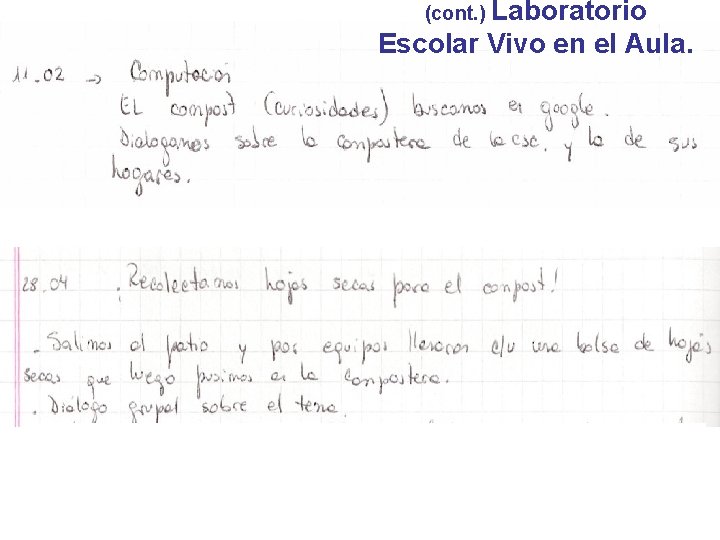 (cont.) Laboratorio
Escolar Vivo en el Aula.
11.02 → Computación
EL compost (curiosidades) buscamos en google.
Dialogamos sobre la compostera de la esc. y la de sus
hogares.
28.04 . Recolectamos hojas secas para el compost!
. Salimos al patio y por equipos llenaron c/u una bolsa de hojas
secas que luego pusimos en la compostera.
. Diálogo grupal sobre el tema.